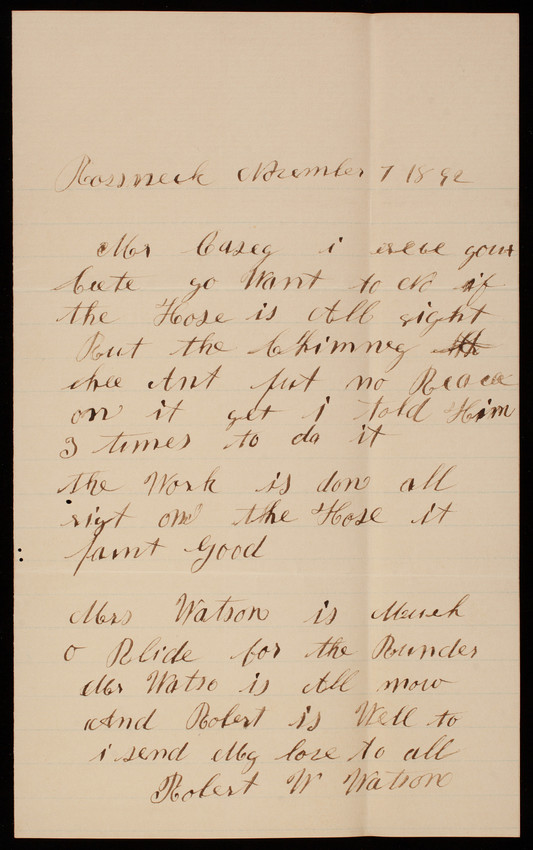 Rossneck November 7 1892
Mr Casey i your
to want to no if
the Hose is All right
But the Chimney
Ant put no
on it yet i told Him
3 times to do it
the Work is don all
rigt on the Hose it
paint Good
Mrs Watson is Much
o Blide for the Runder
Mr Watso is All
And Robert is Well to
i send My love to all
Robert W Watson